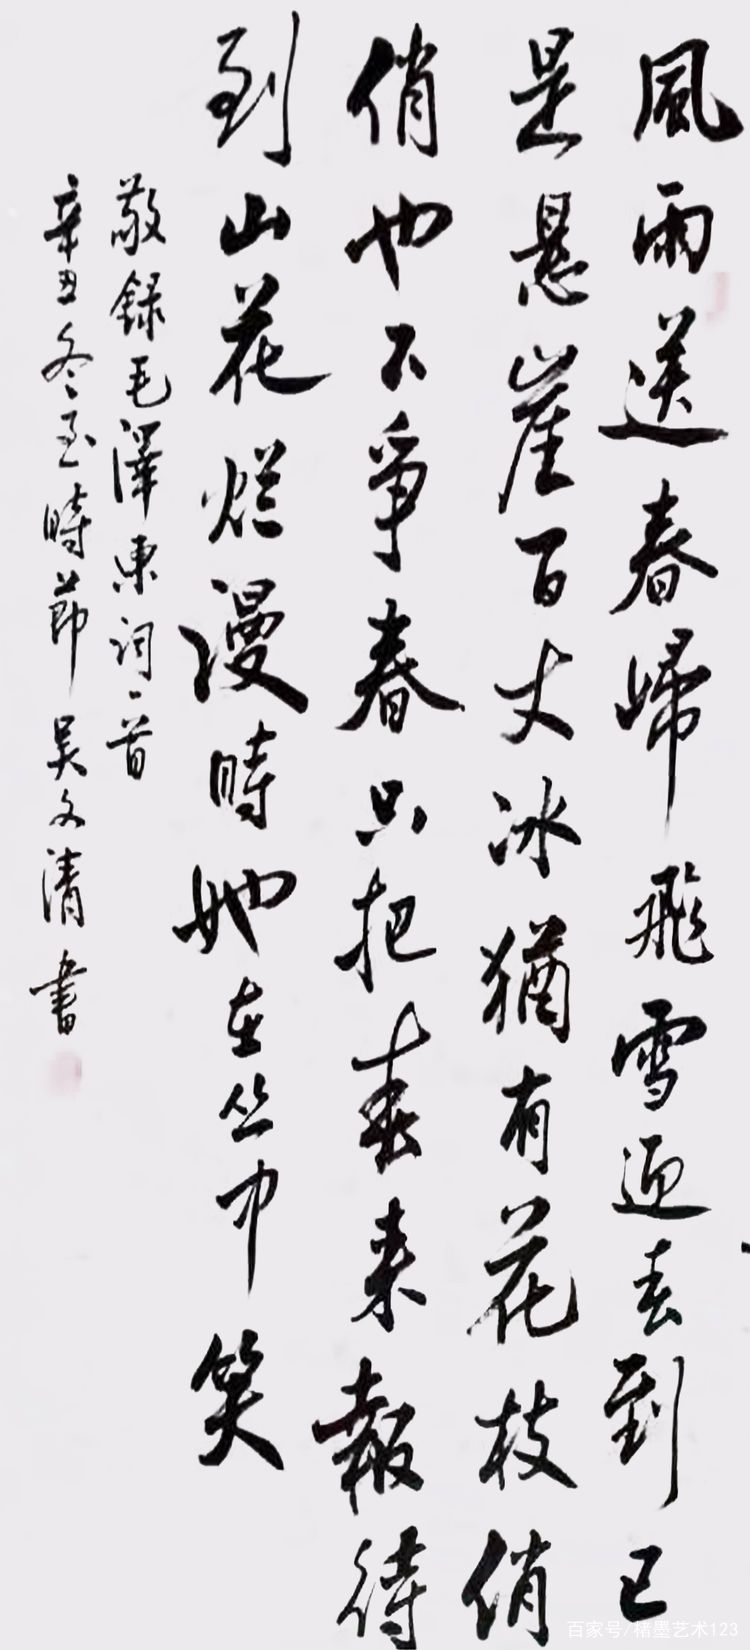 風雨送春歸飛雪迎春到已
是悬崖百丈冰猶有花枝俏
俏也不爭春只把春来報待
到山花烂漫時她在丛中笑
敬録毛澤東词一首
辛丑冬至時節吴文清書
百家号/楮墨艺术123